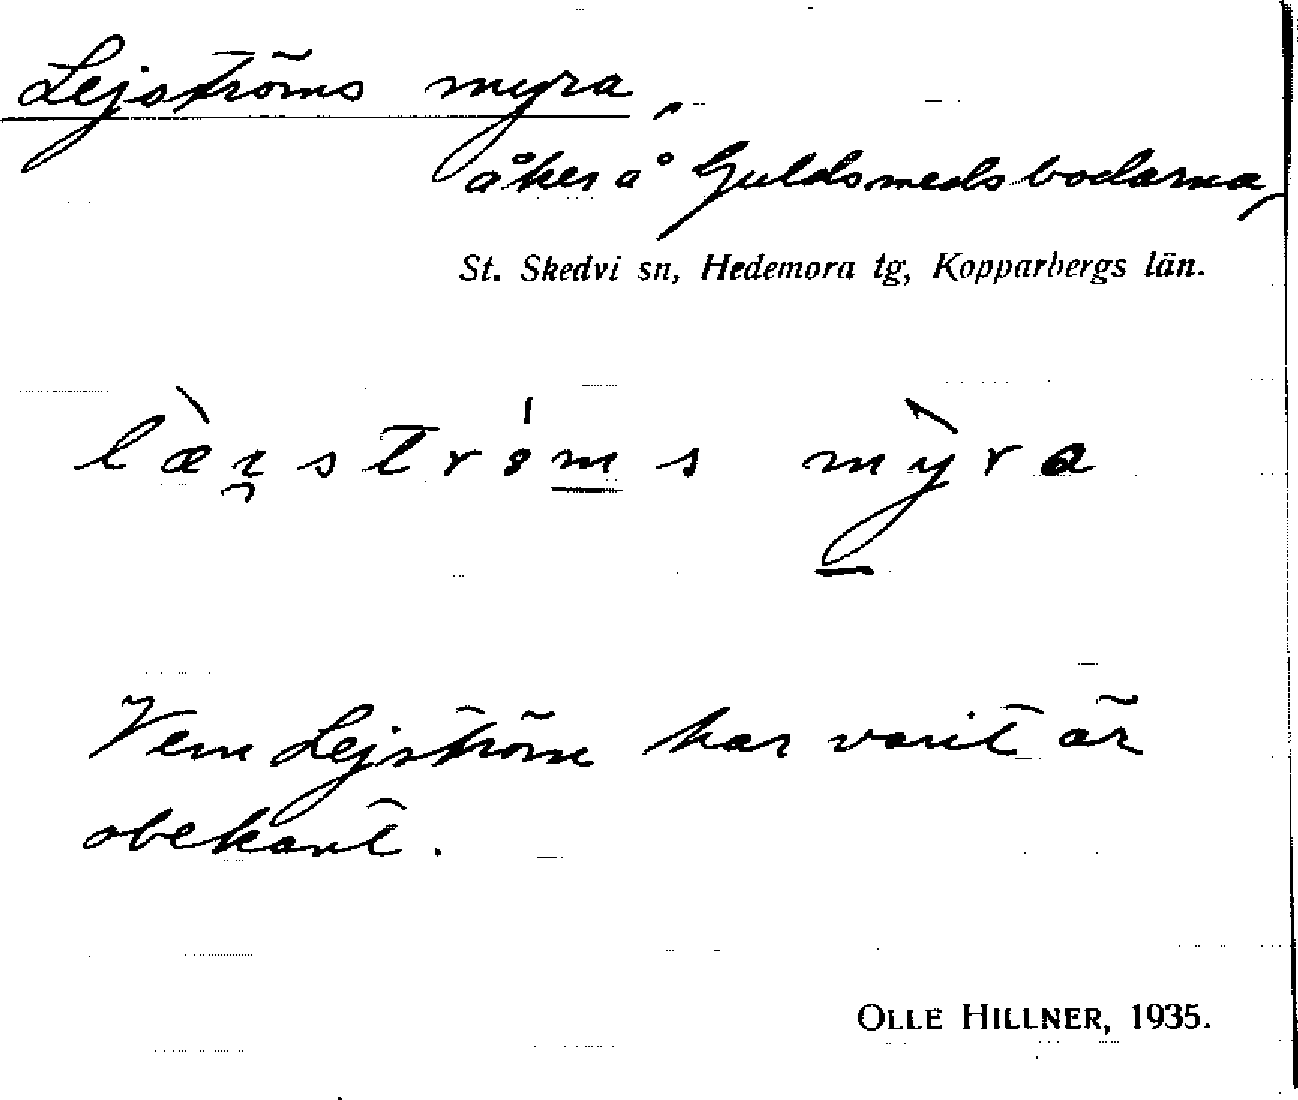 Lejströms myra,
åker å Guldsmedsbodarna,
St. Skedvi sn, Hedemora tg, Kopparbergs län.
myra
Vem Lejström har varit är
obekant.
OLLE HILLNER, 1935.